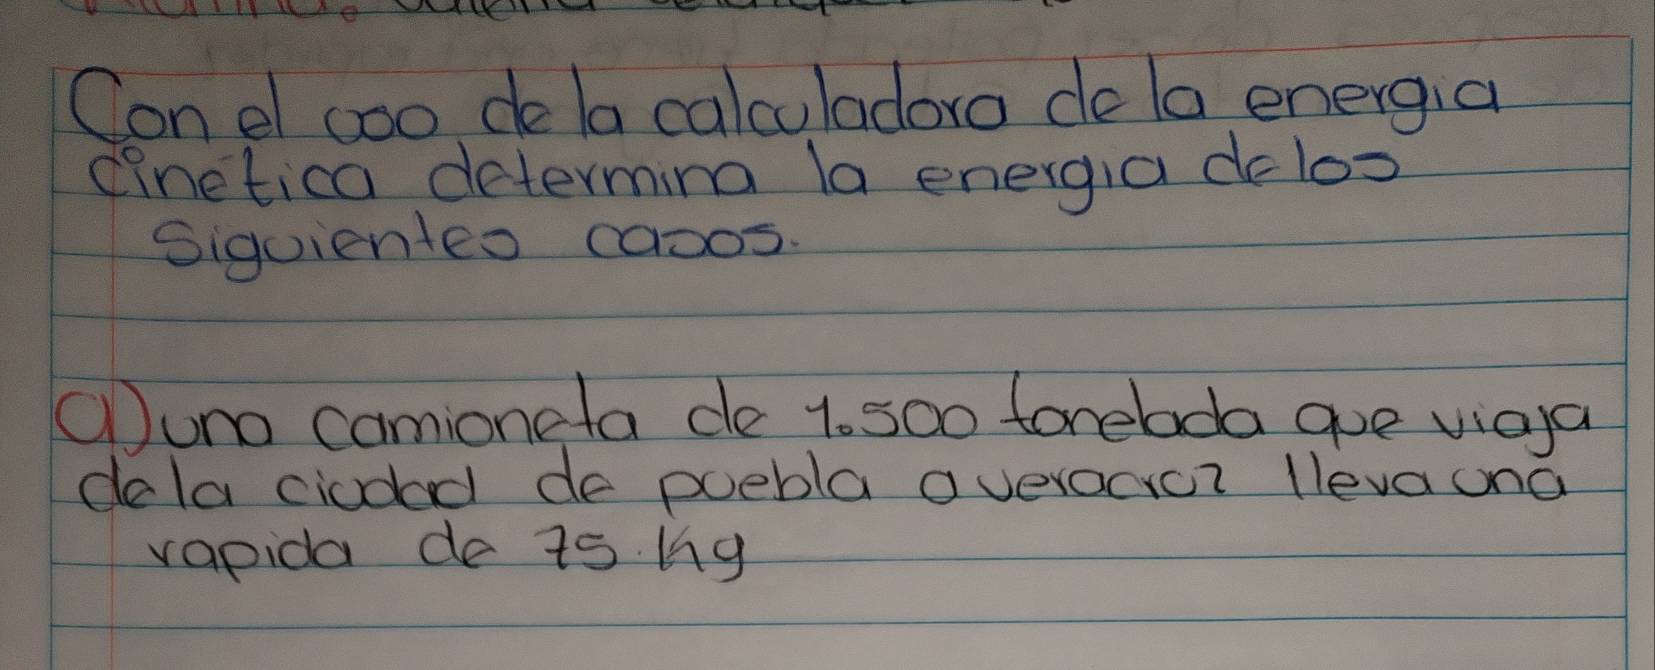 Con el uso de la calculadora de la energia
cinetica determina la energia de los
siguientes casos.
a) una camioneta de 1.500 tonelada que viaja
de la ciudad de puebla a veracruz lleva una
rapida de 75. Kg